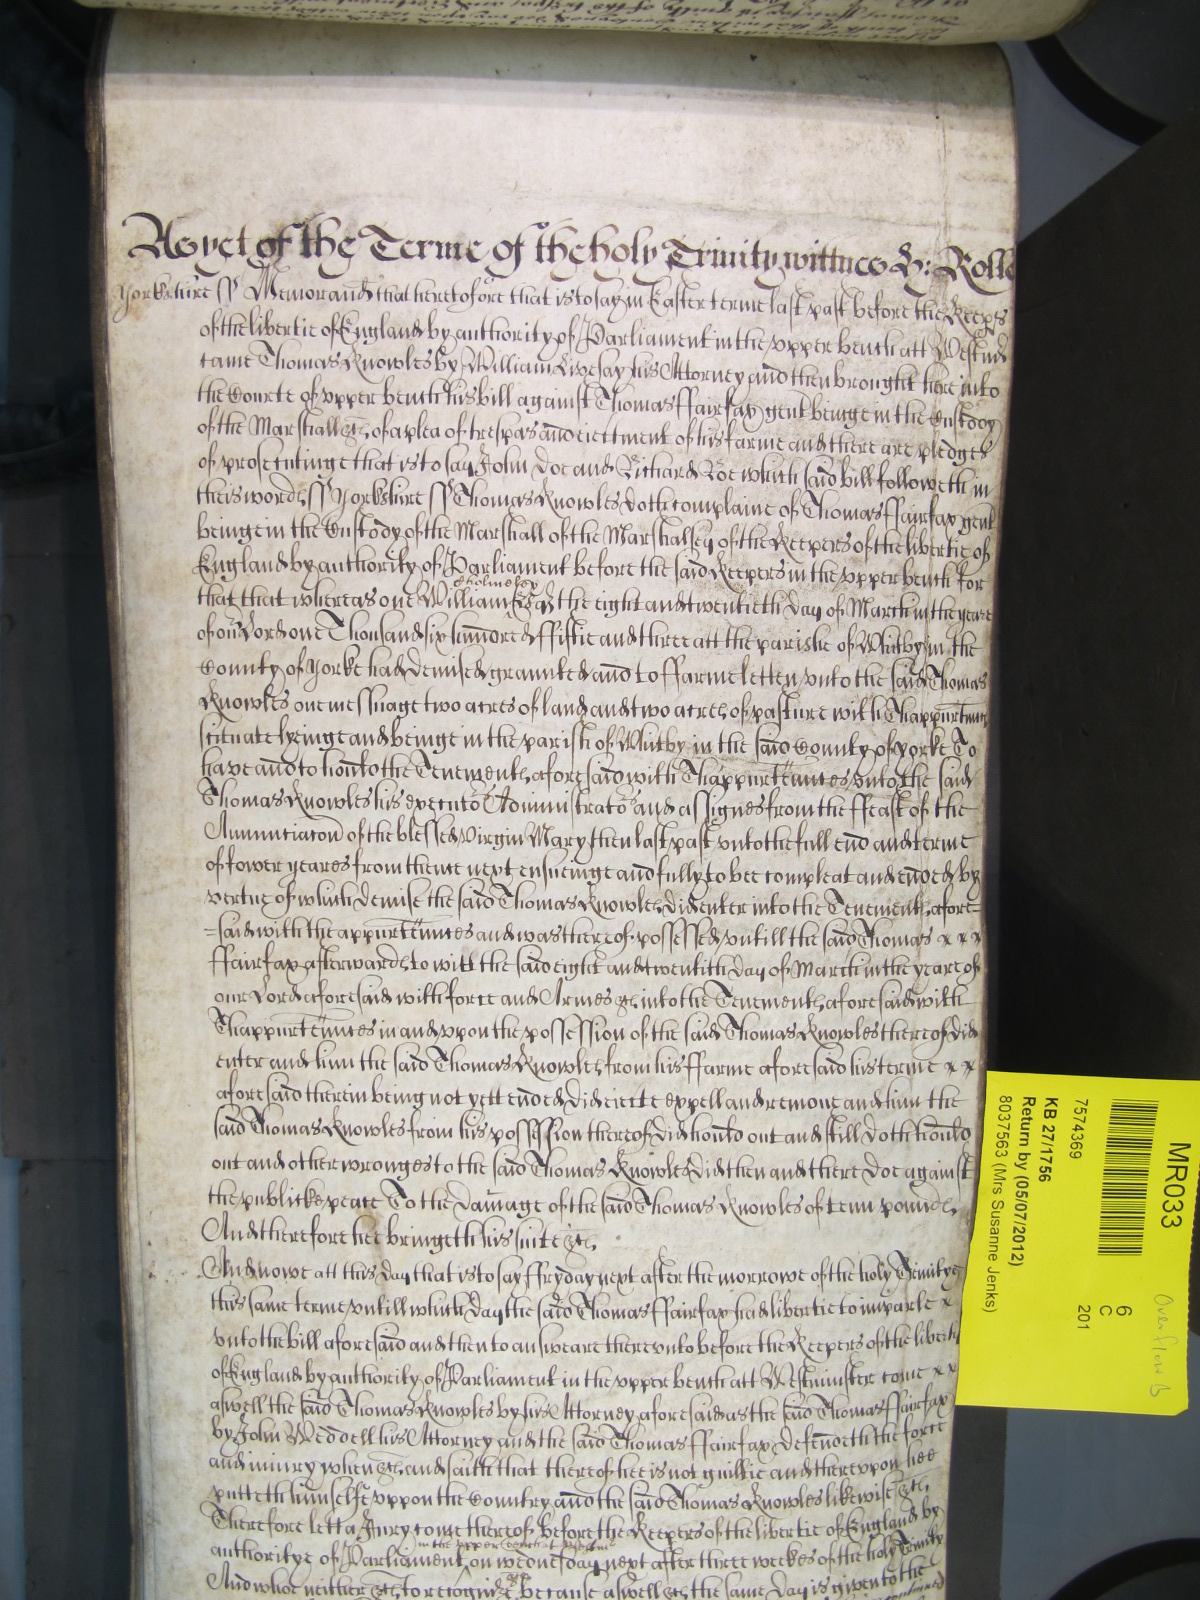 As yet of the Terme of the holy Trinity wittnes H: Rolle
Yorkshire ss Memorand that heretofore that is to say in Easter terme last past before the Keeps
of the libertie of England by authority of Parliament in the upper bench att Westmr
came Thomas Knowles by William Livesay his Attorney and then brought here into
the Courte of upper bench his bill against Thomas ffairfax gent beinge in the Custody
of the Marshall &c of a plea of trespas and eiectment of his farme and there are pledges
of prosecutinge that is to say John Doe and Richard Roe which said bill followeth in
theis words ss Yorkshire ss Thomas Knowles doth complaine of Thomas ffairfax gent
beinge in the Custody of the Marshall of the Marshalsey of the Keepers of the libertie of
England by authority of Parliament before the said Keepers in the upper bench For
Cholmeley
that that whereas one William the eight and twentieth day of March in the yeare
of our Lord one Thousand six hundred ffiftie and three att the parishe of Whitby in the
County of Yorke had demised graunted and to ffarme letten unto the said Thomas
Knowles one messuage two acres of land and two acres of pasture with Thappurtennces
scituate lyeinge and beinge in the parish of Whitby in the said County of Yorke To
have and to hould the Tenements aforesaid with Thappurtennces unto the said
Thomas Knowles his executors Administrators and assignes from the ffeast of the
Annunciacon of the blessed Virgin Mary then last past unto the full end and terme
of fower yeares from thence next ensueinge and fully to bee compleat and ended by
vertue of which demise the said Thomas Knowles did enter into the Tenements afore=
=said with the appurtennces and was thereof possessed untill the said Thomas x x x
ffairfax afterwards to witt the said eight and twentith day of March in the yeare of
our Lord aforesaid with force and Armes &c into the Tenements aforesaid with
Thappurtennces in and upon the possession of the said Thomas Knowles thereof did
enter and him the said Thomas Knowles from his ffarme aforesaid his terme x x
aforesaid therein being not yett ended did eiecte expell and remove and him the
said Thomas Knowles from his possession thereof did hould out and still doth hould
out and other wronges to the said Thomas Knowles did then and there doe against
the publicke peace To the damage of the said Thomas Knowles of tenn pounds.
And therefore hee bringeth his suite &c.
And nowe att this day that is to say ffryday next after the morrowe of the holy Trinitye
this same terme untill which day the said Thomas ffairfax had libertie to imparle x
unto the bill aforesaid and then to answeare thereunto before the Keepers of the libertie
of England by authority of Parliament in the upper bench att Westminster come x x
aswell the said Thomas Knowles by his Attorney aforesaid as the said Thomas ffairfax
by John Weddell his Attorney and the said Thomas ffairfax defendeth the force
and iniury when &c and saith that thereof hee is not guiltie and thereupon hee
putteth himselfe uppon the Country and the said Thomas Knowles likewise &c.
Therefore lett a Jury come thereof before the Keepers of the libertie of England by
in the upper bench at Westmr
authoritye of Parliament on wednesday next after three weekes of the holy Trinity
And whoe neither &c to recognize because aswell &c the same day is given to the
MR033
7574369
KB 27/1756
Return by (05/07/2012)
8037563 (Mrs Susanne Jenks)
6
C
201
Overflow B